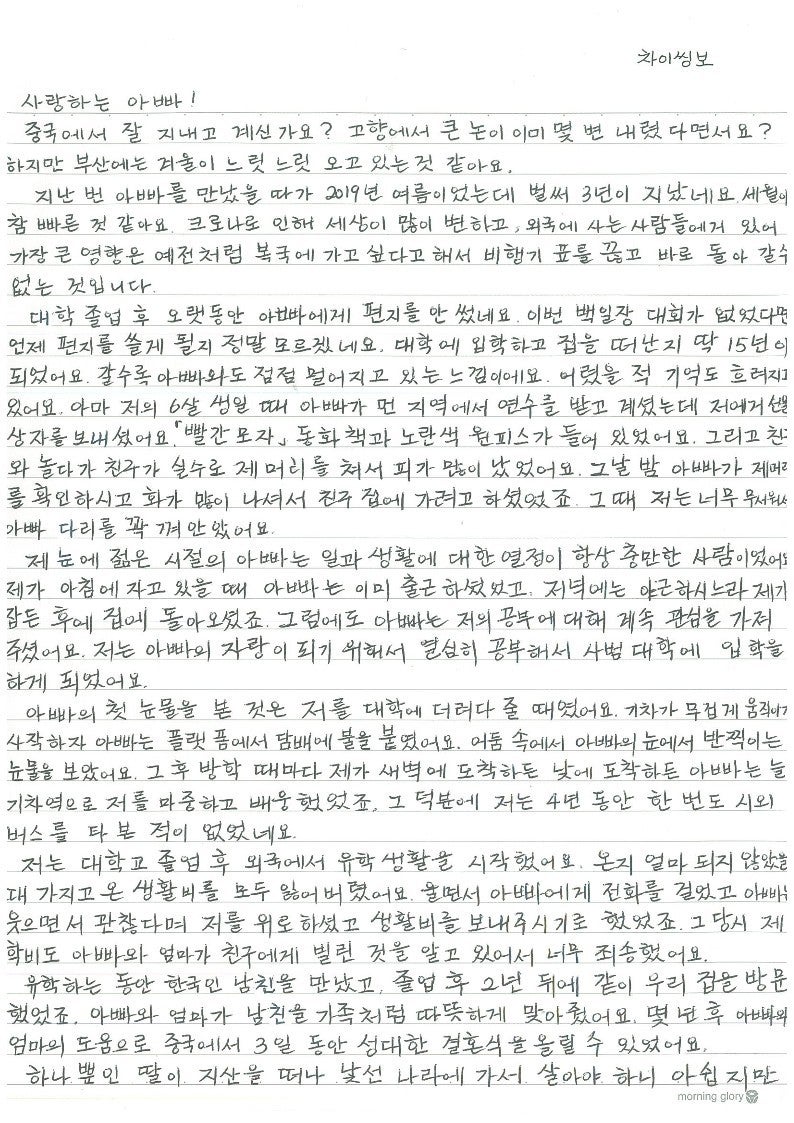 차이씽보
사랑하는 아빠!
중국에서 잘 지내고 계신가요? 고향에서 큰 눈이 이미 몇 번 내렸다면서요?
하지만 부산에는 겨울이 느릿 느릿 오고 있는 것 같아요.
지난 번 아빠를 만났을 때가 2019년 여름이었는데 벌써 3년이 지났네요. 세월이
참 빠른 것 같아요. 크로나로 인해 세상이 많이 변하고, 외국에 사는 사람들에게 있어
가장 큰 영향은 예전처럼 복국에 가고 싶다고 해서 비행기 표를 끊고 바로 돌아 갈수
없는 것입니다.
대학 졸업 후 오랫동안 아빠에게 편지를 안 썼네요. 이번 백일장 대회가 없었다면
언제 편지를 쓸게 될지 정말 모르겠네요. 대학에 입학하고 집을 떠난지 딱 15년이
되었어요. 갈수록 아빠와도 점점 멀어지고 있는 느낌이에요. 어렸을 적 기억도 흐려지고
있어요. 아마 저의 6살 생일 때 아빠가 먼 지역에서 연수를 받고 계셨는데 저에게 선물
상자를 보내셨어요.「빨간 모자」동화책과 노란색 원피스가 들어 있었어요. 그리고 친구
와 놀다가 친구가 실수로 제 머리를 쳐서 피가 많이 났었어요. 그날 밤 아빠가 제 머리
를 확인하시고 화가 많이 나셔서 친구 집에 가려고 하셨었죠. 그 때 저는 너무 무서워서
아빠 다리를 꽉 껴안았어요.
제 눈에 젊은 시절의 아빠는 일과 생활에 대한 열정이 항상 충만한 사람이었어요
제가 아침에 자고 있을 때 아빠는 이미 출근하셨었고, 저녁에는 야근하시느라 제가
잠든 후에 집에 돌아오셨죠. 그럼에도 아빠는 저의 공부에 대해 계속 관심을 가져
주셨어요. 저는 아빠의 자랑이 되기 위해서 열심히 공부해서 사범 대학에 입학을
하게 되었어요.
아빠의 첫 눈물을 본 것은 저를 대학에 더려다 줄 때였어요. 기차가 무겁게 움직이기
시작하자 아빠는 플랫 폼에서 담배에 불을 붙였어요. 어둠 속에서 아빠의 눈에서 반짝이는
눈물을 보았어요. 그 후 방학 때마다 제가 새벽에 도착하든 낮에 도착하든 아빠는 늘
기차역으로 저를 마중하고 배웅했었죠. 그 덕분에 저는 4년 동안 한 번도 시외
버스를 타 본 적이 없었네요.
저는 대학교 졸업 후 외국에서 유학 생활을 시작했어요. 온지 얼마 되지 않았을
때 가지고 온 생활비를 모두 잃어버렸어요. 울면서 아빠에게 전화를 걸었고 아빠는
웃으면서 괜찮다며 저를 위로하셨고 생활비를 보내주시기로 했었죠. 그 당시 제
학비도 아빠와 엄마가 친구에게 빌린 것을 알고 있어서 너무 죄송했어요.
유학하는 동안 한국인 남친을 만났고, 졸업 후 2년 뒤에 같이 우리 집을 방문
했었죠. 아빠와 엄마가 남친을 가족처럼 따뜻하게 맞아줬어요. 몇 년 후 아빠와
엄마의 도움으로 중국에서 3일 동안 성대한 결혼식을 올릴 수 있었어요.
하나 뿐인 딸이 지산을 떠나 낯선 나라에 가서 살아야 하니 아쉽지만
morning glory